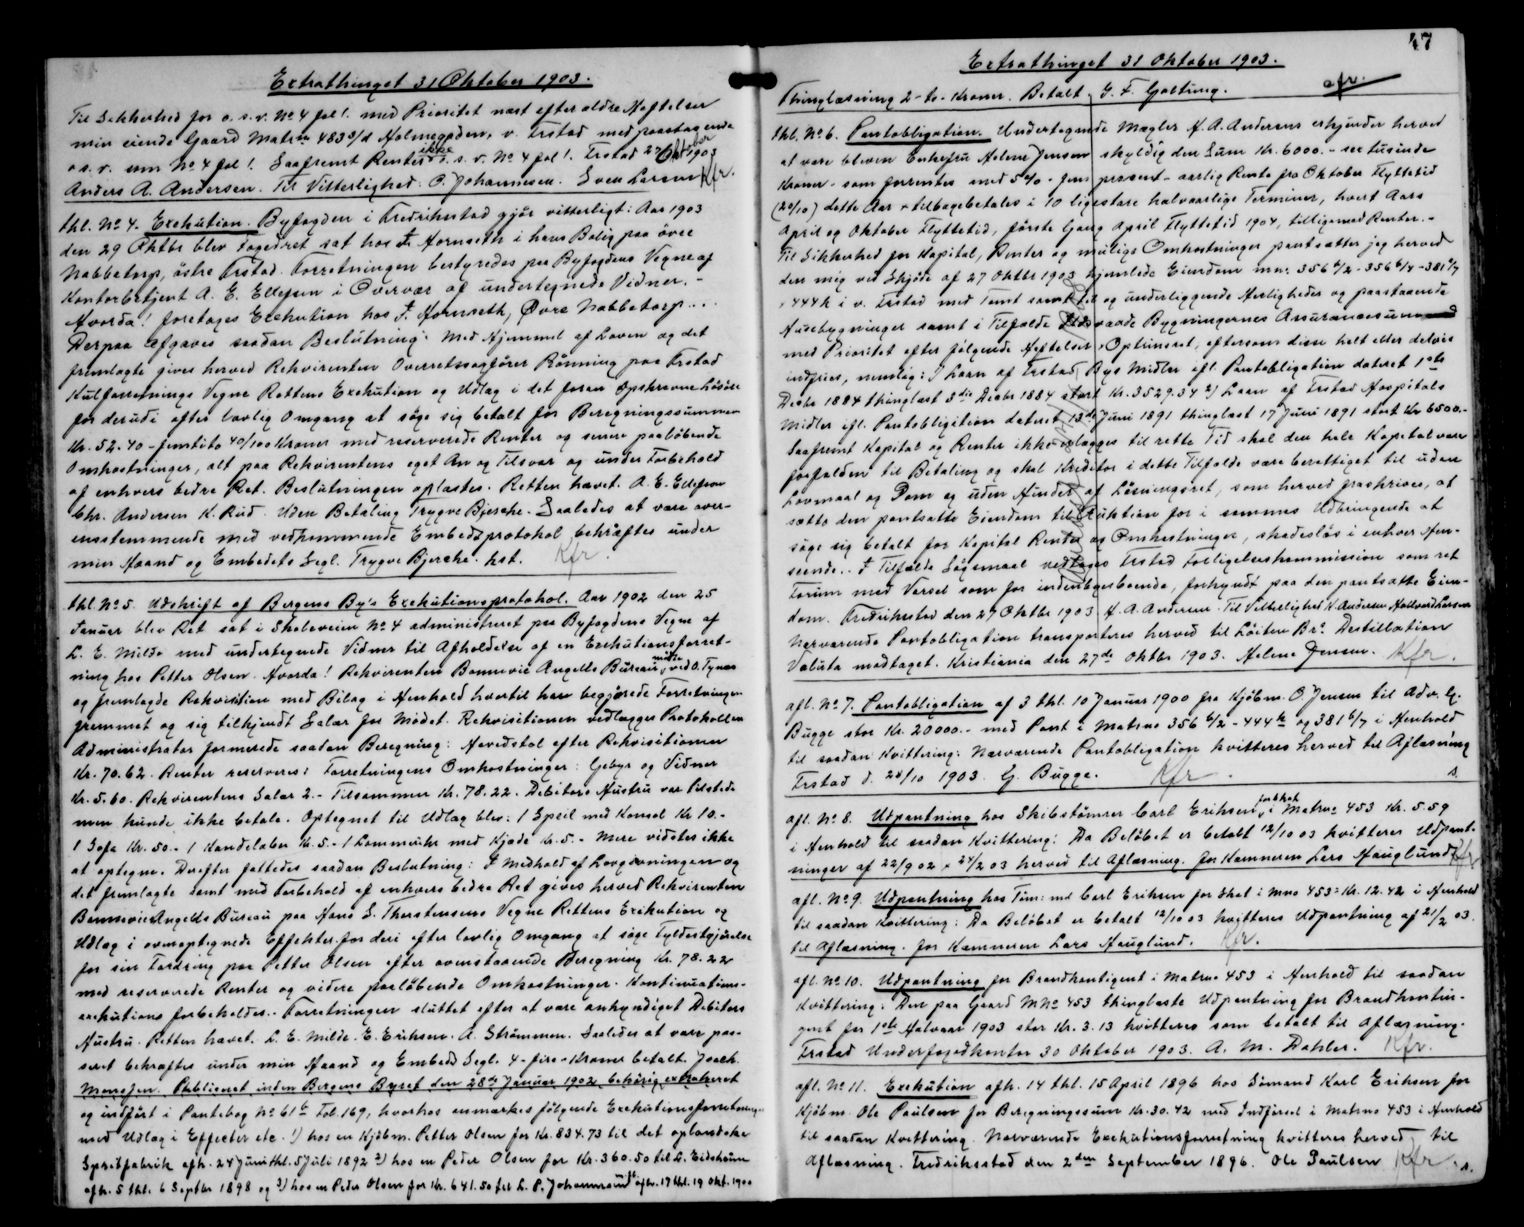 Extrathinget 31 Oktober 1903.
Til Sikkerhed for o.s.v. No 4 fol 1. med Prioritet næst efter ældre Heftelser
min eiende Gaard Matrno 483 a/d Holmegaden, v. Frstad med paastaaende
o.s.v. som No 4 fol 1. Saafremt Renter ikke o.s.v. No 4 fol 1. Frstad 27 Oktober 1903
Anders A. Andersen. Til Vitterlighed. O. Johannesen. Sven Larsen Kfr.
thl. No 4. Exekution. Byfogden i Fredrikstad gjør vitterligt: Aar 1903
den 29 Oktbr blev Fogedret sat hos F. Hornseth i hans Bolig paa övre
Nabbetorp, östre Frstad. Forretningen bestyredes paa Byfogdens Vegne af
Kontorbetjent A. E. Ellefsen i Overvær af undertegnede Vidner. -
Hvorda! foretoges Exekution hos F. Hornseth, Øvre Nabbetorp...
Derpaa afgaves saadan Beslutning: Med Hjemmel af Loven og det
fremlagte gives herved Rekvirenten Overretssagförer Rönning paa Frstad
Kulforretnings Vegne Rettens Exekution og Udlæg i det foran opskrevne Lösöre
for derudi efter lovlig Omgang at söge sig betalt for Beregningssummen
Kr. 52.40 - femtito 40/100 Kroner med reserverede Renter og senere paalöbende
Omkostninger, alt paa Rekvirentens eget An og Tilsvar og under Forbehold
af enhvers bedre Ret. Beslutningen oplæstes. Retten hævet. A. E. Ellefsen
Chr. Andersen K. Rud. Uden Betaling Trygve Bjerche. Saaledes at være over-
ensstemmende med vedkommende Embedsprotokol bekræftes under
min Haand og Embedets Segl. Trygve Bjerche. kst. Kfr.
thl No 5. Udskrift af Bergens By's Exekutionsprotokol. Aar 1902 den 25
Januar blev Ret sat i Skoleveien No 4 administreret paa Byfogdens Vegne af
L. E. Milde med undertegnede Vidner til Afholdelse af en Exekutionsforret-
ning hos Petter Olsen. Hvorda! Rekvirenten Bonnevie Angells Bureau mötte ved O. Tynes
og fremlagde Rekvisition med Bilag i Henhold hvortil han begjærede Forretningen
fremmet og sig tilkjendt Salær for Mödet. Rekvisitionen vedlægges Protokollen
Administrator formerede saadan Beregning: Hovedstol efter Rekvisitionen
Kr. 70.62. Renter reserveres: Forretningens Omkostninger: Gebyr og Vidner
Kr. 5.60. Rekvirentens Salær 2.- Tilsammen Kr. 78.22. Debitors Hustru var tilstede
men kunde ikke betale. Optegnet til Udlæg blev: 1 Speil med Konsol Kr 10.-
1 Sofa Kr. 50.- 1 Kandelaber Kr. 5.- 1 Lommeuhr med Kjæde Kr. 5.- Mere vidstes ikke
at optegne. Derefter fattedes saadan Beslutning: I Medhold af Lovgivningen og
det fremlagte samt med Forbehold af enhvers bedre Ret gives herved Rekvirenten
Bonnevie Angells Bureau paa Hans S. Thorstensens Vegne Rettens Exekution og
Udlæg i ovenoptegnede Effekter for deri efter lovlig Omgang at söge Fyldestgjörelse
for sin Fordring paa Petter Olsen efter ovenstaaende Beregning Kr. 78.22
med reserverede Renter og videre paalöbende Omkostninger. Kontinuations-
exekutions forbeholdes. - Forretningen sluttet efter at være ankyndiget Debitors
Hustru. Retten hævet. L. E. Milde. E. Eriksen. A. Strömmen. Saaledes at være pas-
seret bekræftes under min Haand og Embeds Segl. 4 - fire - Kroner betalt. Joach.
Monssen. Publiceret inden Bergens Byret den 28de Januar 1902, behörig extraheret
og indfört i Pantebog No 61 b Fol. 169, hvorhos anmærkes fölgende Exekutionsforretninger
med Udlæg i Effecter etc. 1) hos en Kjöbm. Petter Olsen for Kr. 834.73 til det oplandske
Spritfabrik afh. 24 Juni thl. 5 Juli 1892 2) hos en Peder Olsen for Kr. 360.50 til L. Eidsheim
afh. 5 thl. 6 Septbr 1898 og 3) hos en Peder Olsen for Kr. 641.50 til L. P. Johannesund afh. 17 thl. 19 Okt. 1900
47
Extrathinget 31 Oktober 1903.
Thinglæsning 2 - to - Kroner. Betalt, G. F. Galtung. afr.
thl. No 6. Pantobligation. Undertegnede Mægler H. A. Andersen erkjender herved
at være bleven Enkefru Helene Jensen skyldig den Sum Kr. 6000.- sex tusinde
Kroner - som forrentes med 5% - fem procent - aarlig Rente fra Oktober Flyttetid
(20/10) dette Aar & tilbagebetales i 10 ligestore halvaarlige Terminer, hvert Aars
April og Oktober Flyttetid, förste Gang April Flyttetid 1904, tilligemed Renter.-
Til Sikkerhed for Kapital, Renter og mulige Omkostninger pantsætter jeg herved
den mig ved Skjöde af 27 Oktbr 1903 hjemlede Eiendom mno: 356 b/2 - 356 b/4 - 381 b/7
& 444 k i v. Frstad med Tomt samt til og underliggende Herligheder og paastaaende
Husebygninger samt i Tilfælde Ildsvaade Bygningernes Assurancesum
med Prioritet efter fölgende Heftelser, & Optrinsret, eftersom disse helt eller delvis
indfries, nemlig: 1) Laan af Frstad Bys Midler ifl. Pantobligation dateret 1ste
Decbr 1884 thinglæst 3die Decbr 1884 stort Kr. 3529.34 2) Laan af Frstad Hospitals
Midler ifl. Pantobligation dateret 13de Juni 1891 thinglæst 17 Juni 1891 stort Kr 6500.-
Saafremt Kapital og Renter ikke erlægges til rette Tid skal den hele Kapital være
forfalden til Betaling og skal Kreditor i dette Tilfælde være berettiget til uden
Lovmaal og Dom og uden Hinder af Lösningsret, som herved fraskrives, at
sætte den pantsatte Eiendom til Auktion for i sammes Udbringende at
söge sig betalt for Kapital Renter og Omkostninger, skadeslös i enhver Hen-
seende.. I Tilfælde Sögsmaal vedtages Frstad Forligelseskommission som ret
Forum med Varsel som for indenbyesboende, forkyndt paa den pantsatte Eien-
dom. Fredrikstad den 27 Oktbr 1903. H. A. Andersen. Til Vitterlighed K. Andersen Hallvard Larsen
Nærværende Pantobligation transporteres herved til Löiten Brs. Destillation
Valuta modtaget. Kristiania den 27de Oktbr 1903. Helene Jensen. Kfr.
afl. No 7. Pantobligation af 3 thl. 10 Januar 1900 fra Kjöbm. O Jensen til Adv. G.
Bugge stor Kr. 20000.- med Pant i Matrno 356 b/2 - 444 k og 381 b/7 i Henhold
til saadan Kvittering: Nærværende Pantobligation kvitteres herved til Aflæsning
Frstad d. 28/10 1903. G. Bugge. Kfr. s.
afl. No 8. Udpantning hos Skibstömrer Carl Eriksen for Skat i Matrno 453 Kr. 5.59
i Henhold til saadan Kvittering: Da Belöbet er betalt 12/10 03 kvitteres Udpant-
ninger af 22/9 02 & 27/2 03 herved til Aflæsning. for Kæmneren Lars Hauglund Kfr
afl. No 9. Udpantning hos Töm:md Carl Eriksen for Skat i mno 453 = Kr. 12.42 i Henhold
til saadan Kvittering: Da Belöbet er betalt 12/10 03 kvitteres Udpantning af 21/2 03.
til Aflæsning. for Kæmneren Lars Hauglund. Kfr.
afl. No 10. Udpantning for Brandkontigent i Matrno 453 i Henhold til saadan
Kvittering: Den paa Gaard MNo 453 thinglæste Udpantning for Brandkontin-
gent for 1ste Halvaar 1903 stor Kr. 3.13 kvitteres som betalt til Aflæsning.
Frstad Underfogedkontor 30 Oktober 1903. A. M. Dahler. Kfr.
afl. No 11. Exekution afh. 14 thl. 15 April 1896 hos Sömand Karl Eriksen for
Kjöbm. Ole Paulsen for Beregningssum Kr. 30.42 med Indförsel i Matrno 453 i Henhold
til saadan Kvittering. Nærværende Exekutionsforretning kvitteres herved til
Aflæsning. Fredriksstad den 2den September 1896. Ole Paulsen Kfr. s.